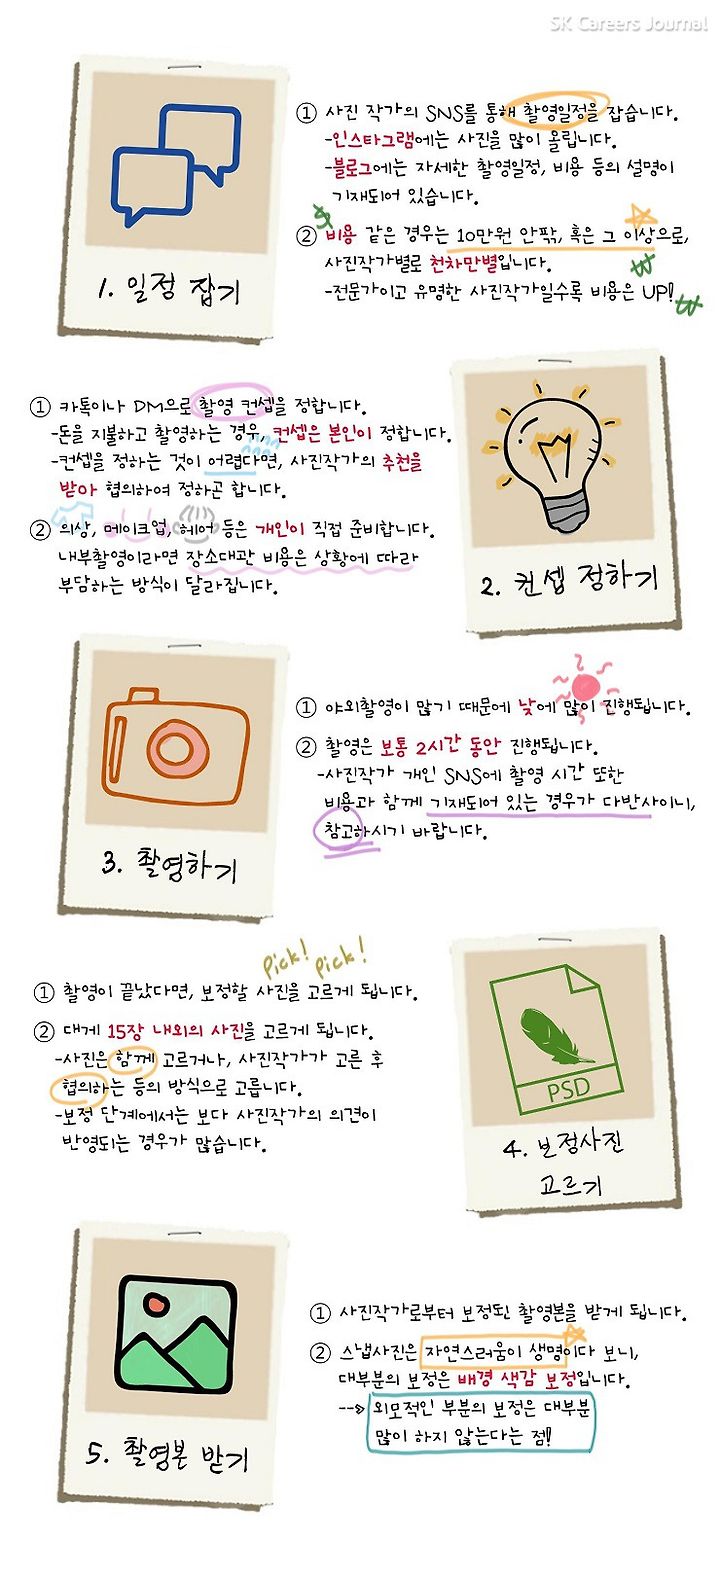 SK Careers Journal
① 사진 작가의 SNS를 통해 촬영일정을 잡습니다.
-인스타그램에는 사진을 많이 올립니다.
-블로그에는 자세한 촬영일정, 비용 등의 설명이
기재되어 있습니다.
② 비용 같은 경우는 10만원 안팎, 혹은 그 이상으로,
사진작가별로 천차만별입니다.
-전문가이고 유명한 사진작가일수록 비용은 UP!
1. 일정 잡기
① 카톡이나 DM으로 촬영 컨셉을 정합니다.
-돈을 지불하고 촬영하는 경우, 컨셉은 본인이 정합니다.
-컨셉을 정하는 것이 어렵다면, 사진작가의 추천을
받아 협의하여 정하곤 합니다.
② 의상, 메이크업, 헤어 등은 개인이 직접 준비합니다.
내부촬영이라면 장소대관 비용은 상황에 따라
부담하는 방식이 달라집니다.
2. 컨셉 정하기
① 야외촬영이 많기 때문에 낮에 많이 진행됩니다.
② 촬영은 보통 2시간 동안 진행됩니다.
-사진작가 개인 SNS에 촬영 시간 또한
비용과 함께 기재되어 있는 경우가 다반사이니,
참고하시기 바랍니다.
3. 촬영하기
Pick! Pick!
① 촬영이 끝났다면, 보정할 사진을 고르게 됩니다.
② 대게 15장 내외의 사진을 고르게 됩니다.
-사진은 함께 고르거나, 사진작가가 고른 후
협의하는 등의 방식으로 고릅니다.
-보정 단계에서는 보다 사진작가의 의견이
반영되는 경우가 많습니다.
PSD
4. 보정사진
고르기
① 사진작가로부터 보정된 촬영본을 받게 됩니다.
② 스냅사진은 자연스러움이 생명이다 보니,
대부분의 보정은 배경 색감 보정입니다.
--> 외모적인 부분의 보정은 대부분
많이 하지 않는다는 점!
5. 촬영본 받기